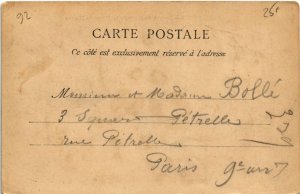 92
25c
CARTE POSTALE
Ce côté est exclusivement réservé à l'adresse
Messieurs et Madame Bollé
3 Square Pétrelle
rue Pétrelle
Paris 9e arrt